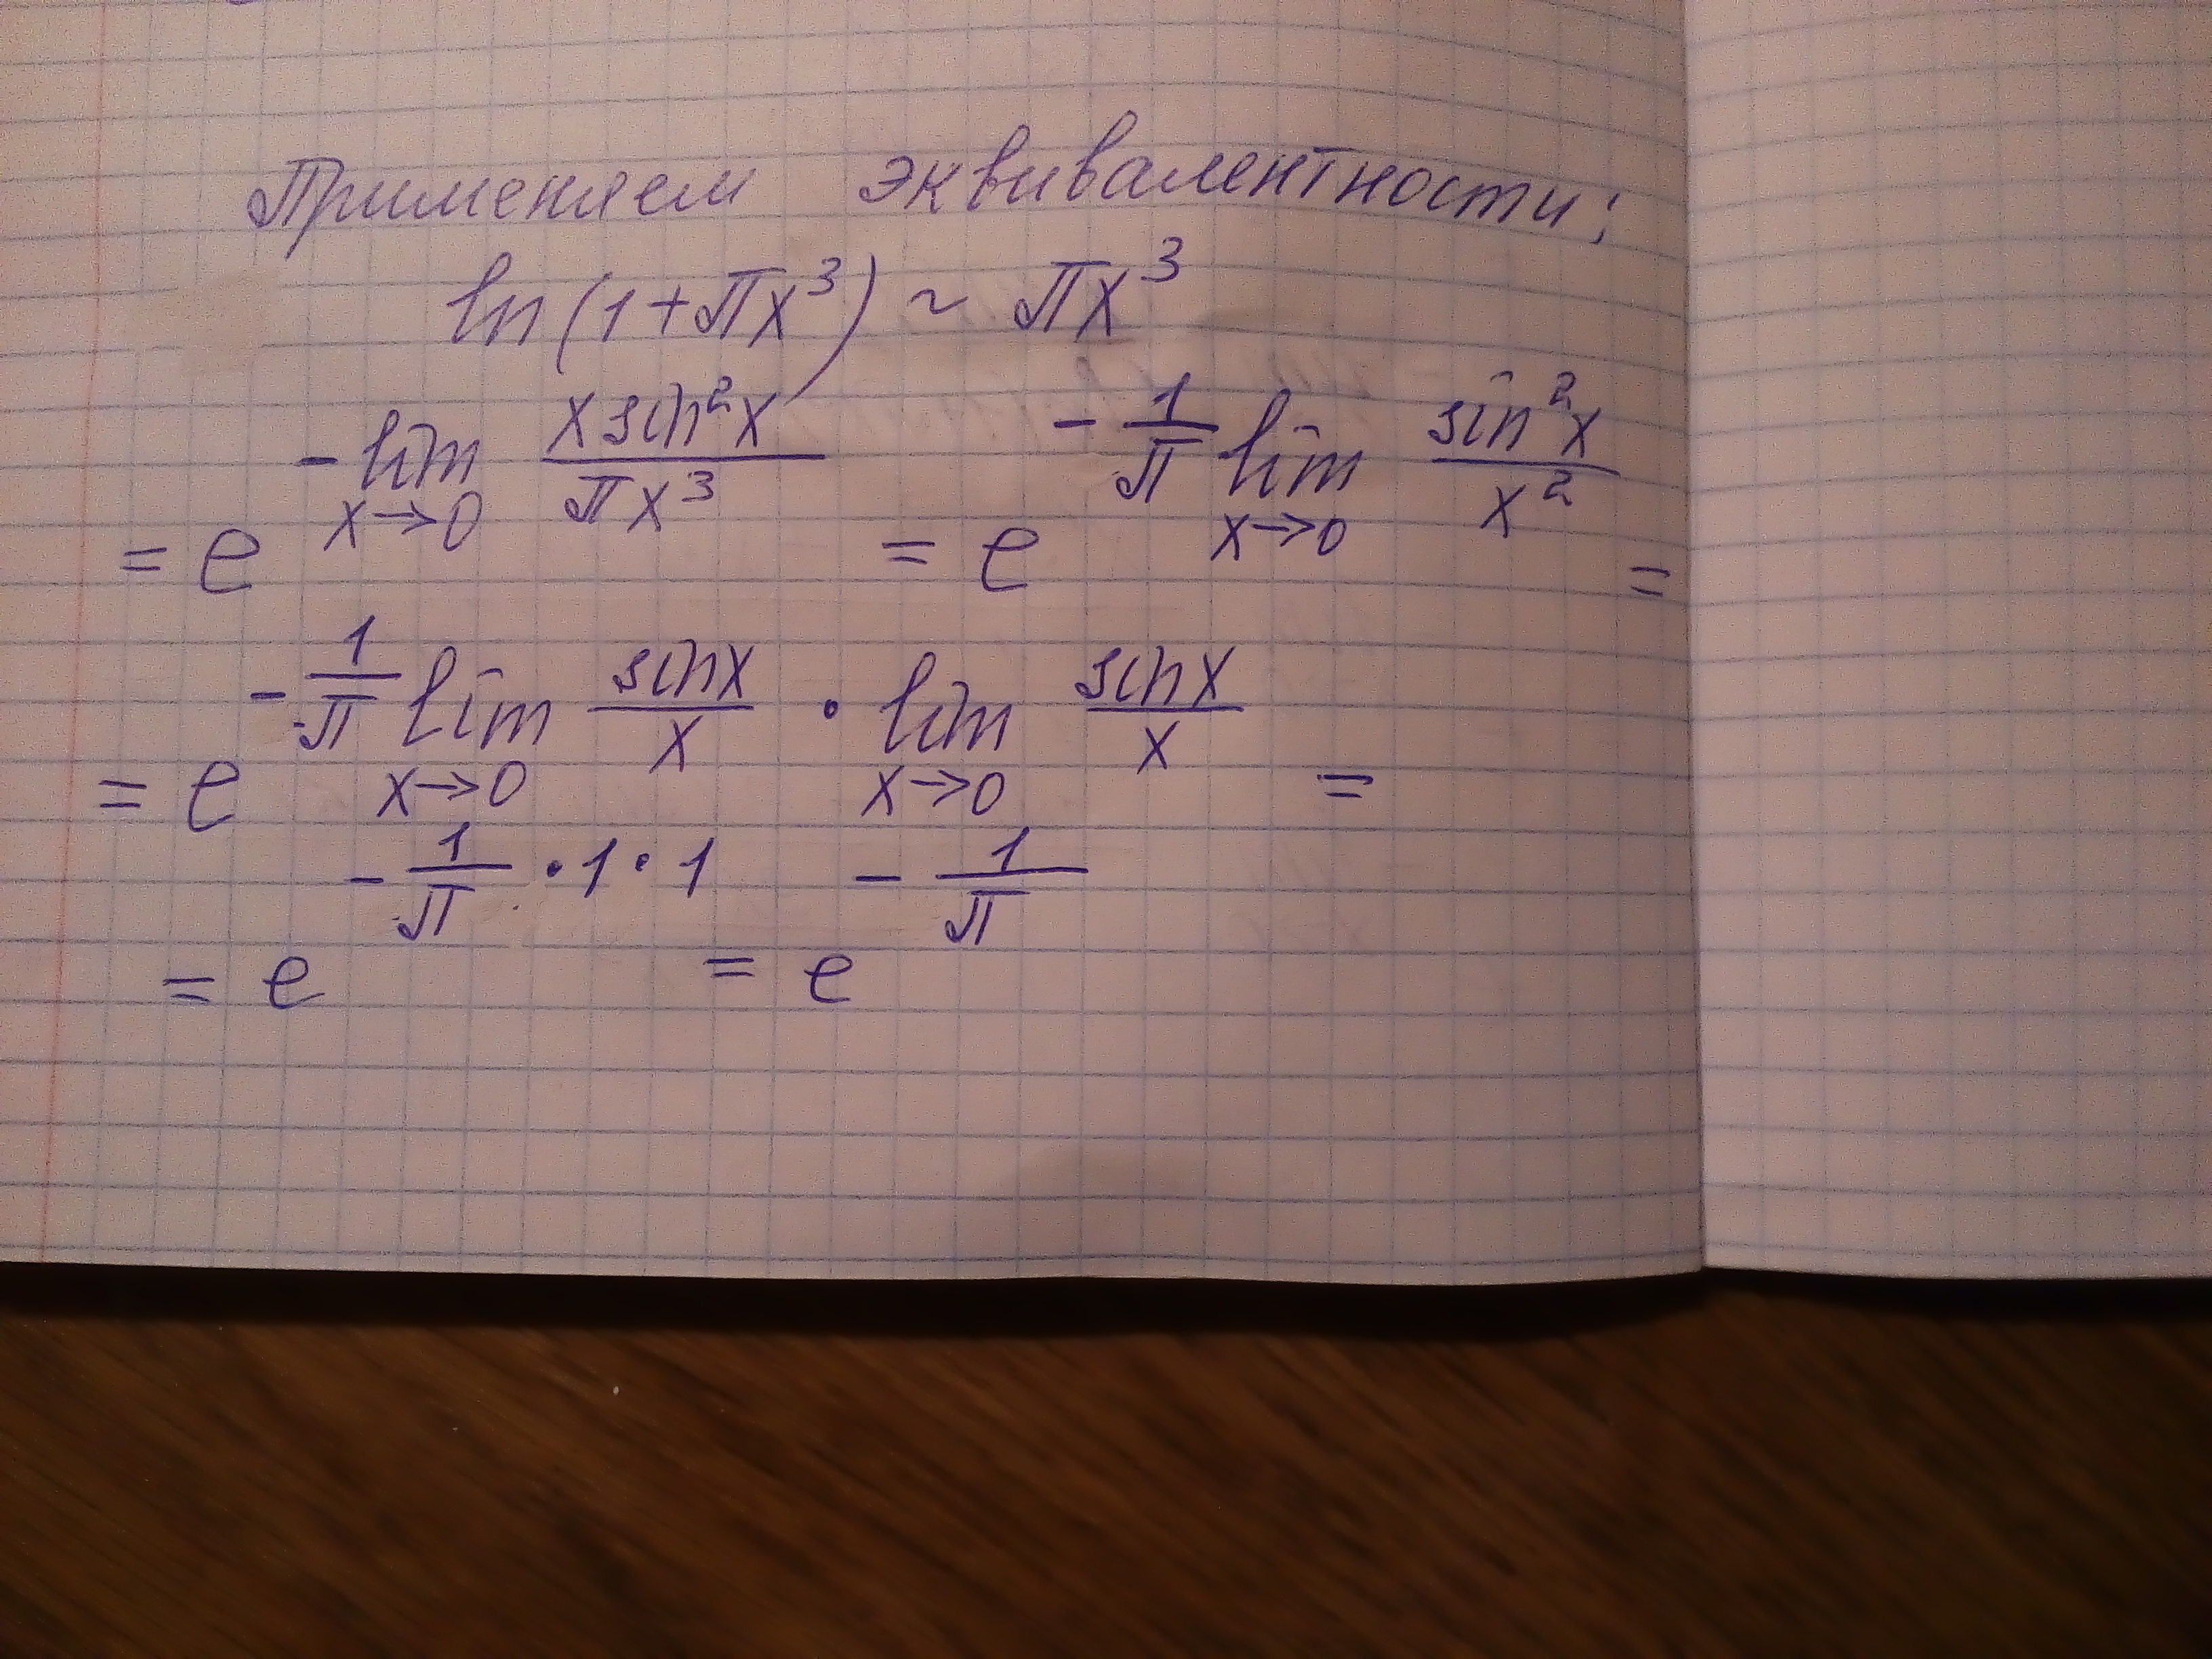 Применяем эквивалентности:
ln(1+πx³) ~ πx³
= e^(-lim_(x→0) (x sin²x)/(πx³)) = e^(-1/π lim_(x→0) (sin²x)/(x²)) =
= e^(-1/π lim_(x→0) (sinx)/x · lim_(x→0) (sinx)/x) =
= e^(-1/π · 1 · 1) = e^(-1/π)